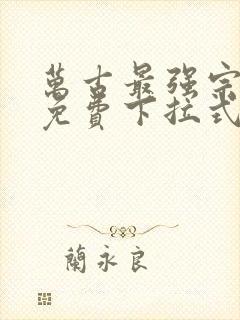 萬古最强宗
免費下拉式
蘭永良